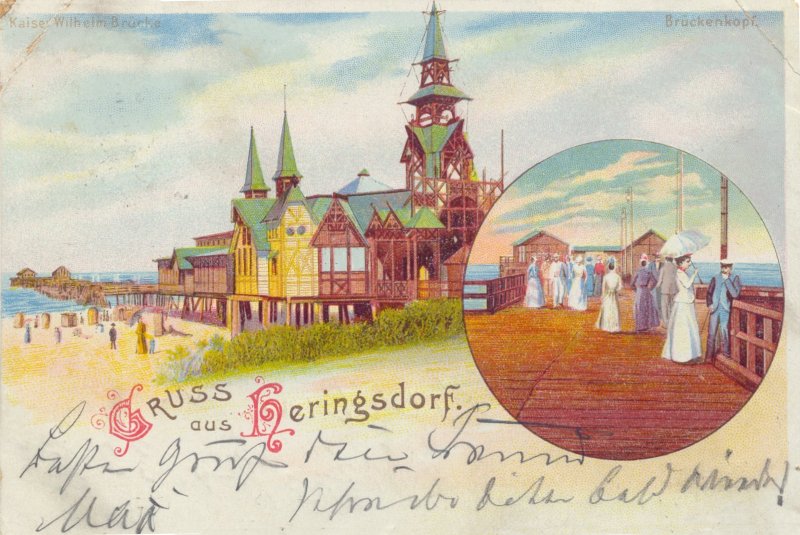 Kaiser Wilhelm Brücke
Brückenkopf.
Gruss
aus Heringsdorf.
Besten Gruß dein Freund
Max
Schreibe bitte bald wieder!